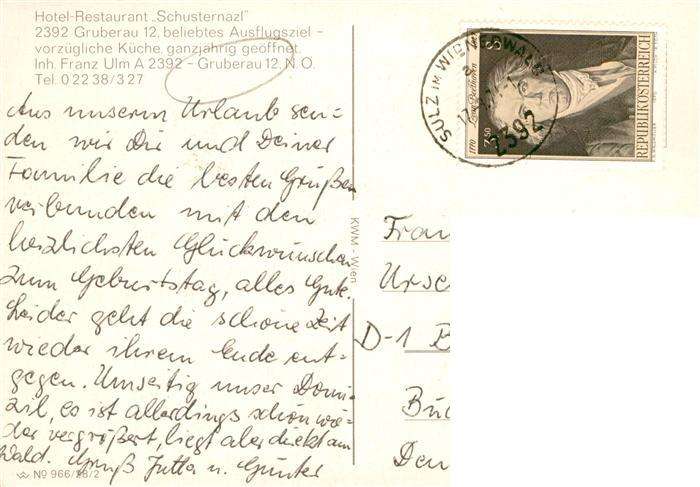 Hotel-Restaurant „Schusternazl"
2392 Gruberau 12, beliebtes Ausflugsziel –
vorzügliche Küche, ganzjährig geöffnet.
Inh. Franz Ulm A 2392 – Gruberau 12, N.Ö.
Tel. 0 22 38/3 27
Aus unserm Urlaub sen=
den wir Dir und Deiner
Familie die besten Grüße
verbunden mit den
herzlichsten Glückwünschen
zum Geburtstag, alles Gute.
Leider geht die schöne Zeit
wieder ihrem Ende ent=
gegen. Umseitig unser Domi-
zil, es ist allerdings schon wie=
der vergrößert, liegt aber direkt am
Wald. Gruß Jutta u. Günter
Nº 966/28/2
KWM - Wien
SULZ IM WIENERWALD
2392
1770
3.50
REPUBLIK ÖSTERREICH
Frau
Urse
D-1 B
Buc
Den